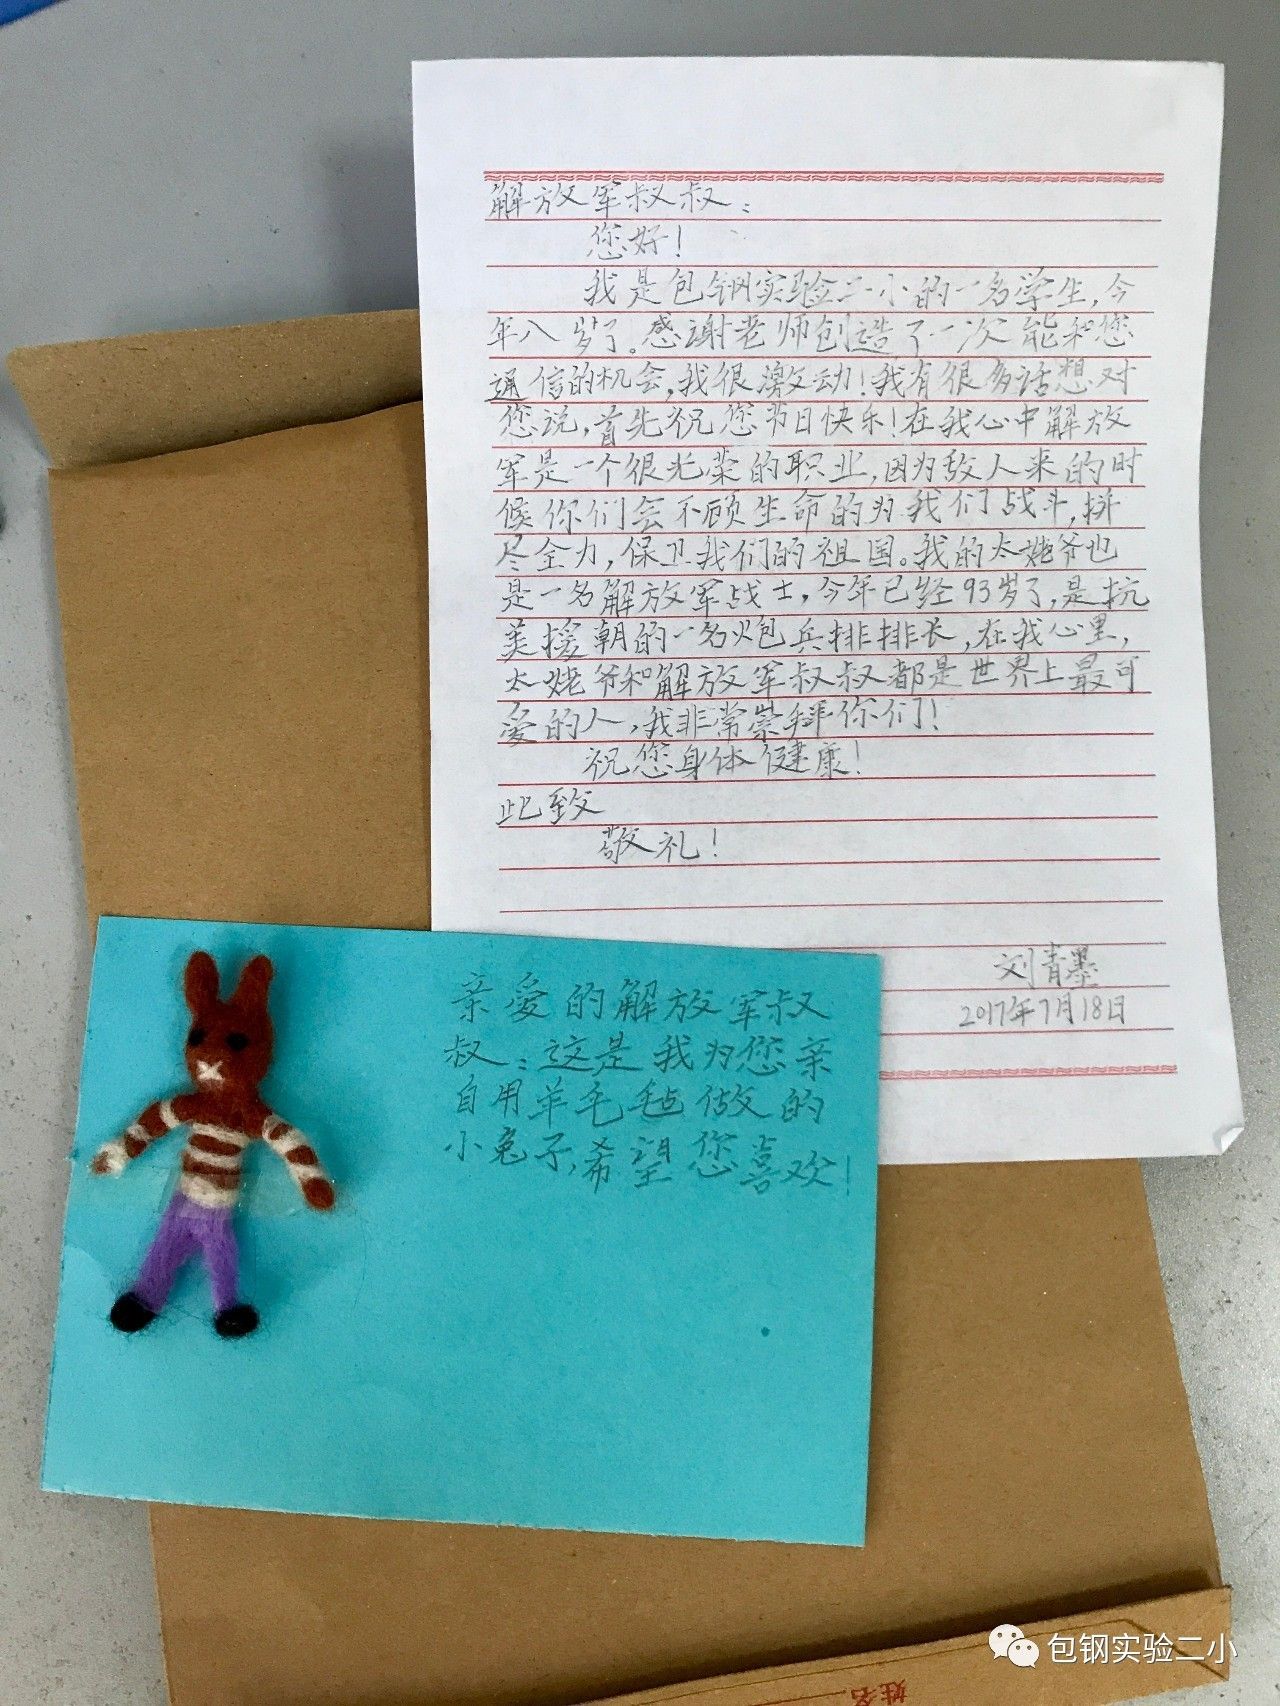 解放军叔叔：
您好！
我是包钢实验二小的一名学生，今
年八岁了。感谢老师创造了一次能和您
通信的机会，我很激动！我有很多话想对
您说，首先祝您节日快乐！在我心中解放
军是一个很光荣的职业，因为敌人来的时
候你们会不顾生命的为我们战斗，拼
尽全力，保卫我们的祖国。我的太姥爷也
是一名解放军战士，今年已经93岁了，是抗
美援朝的一名炮兵排排长，在我心里，
太姥爷和解放军叔叔都是世界上最可
爱的人，我非常崇拜你们！
祝您身体健康！
此致
敬礼！
刘青墨
2017年7月18日
亲爱的解放军叔
叔：这是我为您亲
自用羊毛毡做的
小兔子，希望您喜欢！
包钢实验二小
姓名